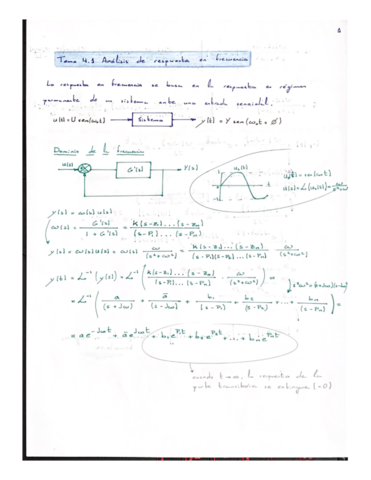 1
Tema 4.1 Análisis de respuesta en frecuencia
La respuesta en frecuencia se basa en la respuesta en régimen
permanente de un sistema ante una entrada senoidal.
u(t)=U sen(ωt) → Sistema → y(t) = Y sen(ωt + Ø)
Dominio de la frecuencia
u(s) G'(s) Y(s)
y(s) = w(s) u(s)
w(s) = G'(s) / (1 + G'(s)) = K(s-z₁)...(s-zₘ) / (s-p₁)...(s-pₙ)
y(s) = w(s) u(s) = w(s) · ω / (s²+ω²) = K(s-z₁)...(s-zₘ) / (s-p₁)(s-p₂)...(s-pₙ) · ω / (s²+ω²)
y(t) = ℒ⁻¹ (y(s)) = ℒ⁻¹ ( K(s-z₁)...(s-zₘ) / (s-p₁)...(s-pₙ) · ω / (s²+ω²) ) =
s²+ω² = (s+jω)(s-jω)
= ℒ⁻¹ ( a / (s+jω) + ā / (s-jω) + b₁ / (s-p₁) + b₂ / (s-p₂) + ... + bₙ / (s-pₙ) ) =
= a e^-jωt + ā e^jωt + b₁ e^p₁t + b₂ e^p₂t + ... + bₙ e^pₙt
cuando t→∞, la respuesta de la
parte transitoria se extingue (=0)